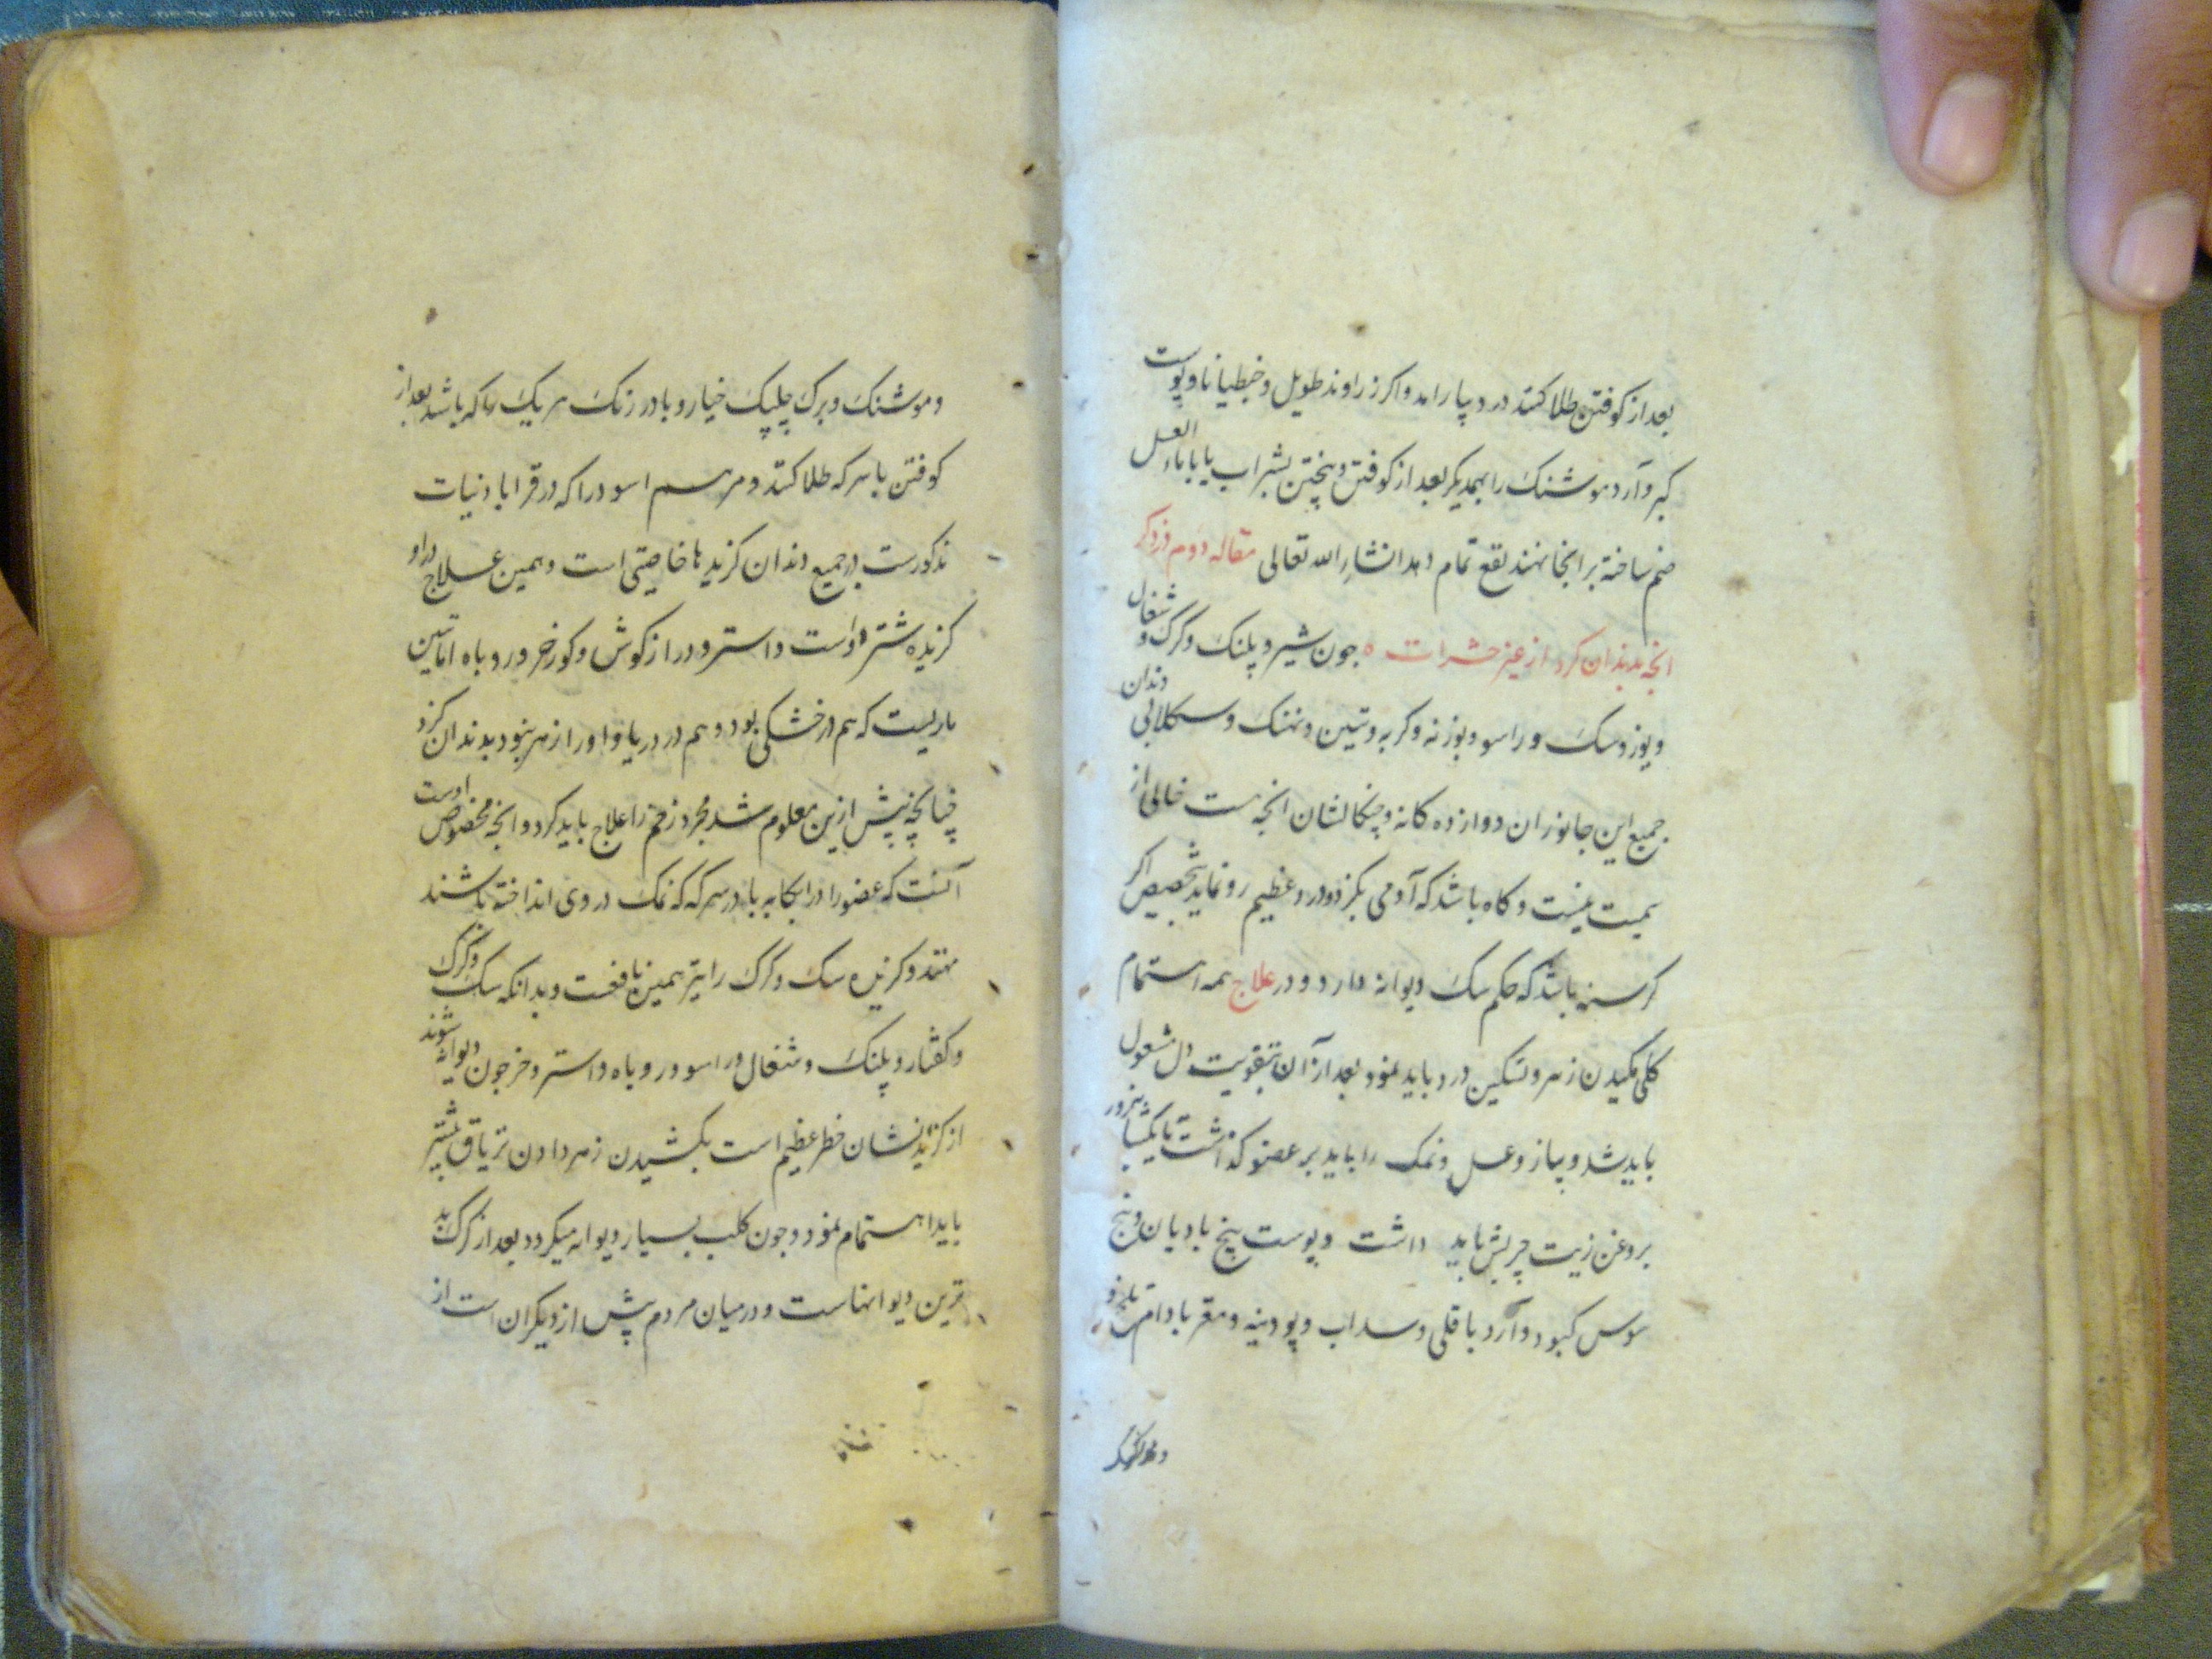 بعد از کوفتن طلا کنند درد پا را بد و اکر زراوند طویل و جنطیانا و پوست
کبر و آرد موشنک را بهمدیکر بعد از کوفتن و پختن بشراب یا بماء العسل
ضم ساخته بر انجا نهند نفع تمام دهد انشاء الله تعالی مقاله دوم در ذکر
انچه بدندان کزد از غیر حشرات ه چون شیر و پلنک و کرک و شغال
و یوز و سک و راسو و بوزنه و کربه و تنین و نهنک و سکلابی دندان
جمیع این جانوران دوازده کانه و چنکالشان انچه هست خالی از
سمیت نیست و کاه باشد که آدمی بکزد و درد عظیم رو نماید بتخصیص اکر
کرسنه باشد که حکم سک دیوانه دارد و در علاج همه اهتمام
کلی بمکیدن زهر و تسکین درد باید نمود بعد از آن بتقویت دل مشغول
باید شد و پیاز و عسل و نمک را باید بر عضو کذاشت تا یکشبانروز
بروغن زیت چربش باید داشت و پوست بیخ بادیان و بیخ
سوس کبود و آرد باقلی و سداب و پودینه و مغز بادام تلخ و
و موشنک و برک چلپک خیار و بادرنک هریک را که باشد بعد از
کوفتن با سرکه طلا کنند و مرهم اسود را که در قرابادنیات
مذکورست در جمیع دندان کزیدها خاصیتی است و همین علاج دراو
کزیده شتر و است و استر و دراز کوش و کورخر و روباه اما تنین
ماریست که هم در خشکی بود و هم در دریا و او را زهر نبود بدندان کزد
چنانچه پیش ازین معلوم شد مجرد زخم را علاج باید کرد و انچه مخصوص اوست
آنست که عضو را در ابکامه یا در سرکه که نمک در وی انداخته باشند
نهند و کزیده سک و کرک را نیز همین نافعست و بدانکه سک و کرک
و کفتار و پلنک و شغال و راسو و روباه و استر و خر چون دیوانه شوند
از کزیدنشان خطر عظیم است بکشیدن زهر دادن تریاق بیشتر
باید اهتمام نمود و چون کلب بسیار دیوانه میکردد بعد از کرک بد
ترین دیوانهاست و در میان مردم پیش از دیکران است از